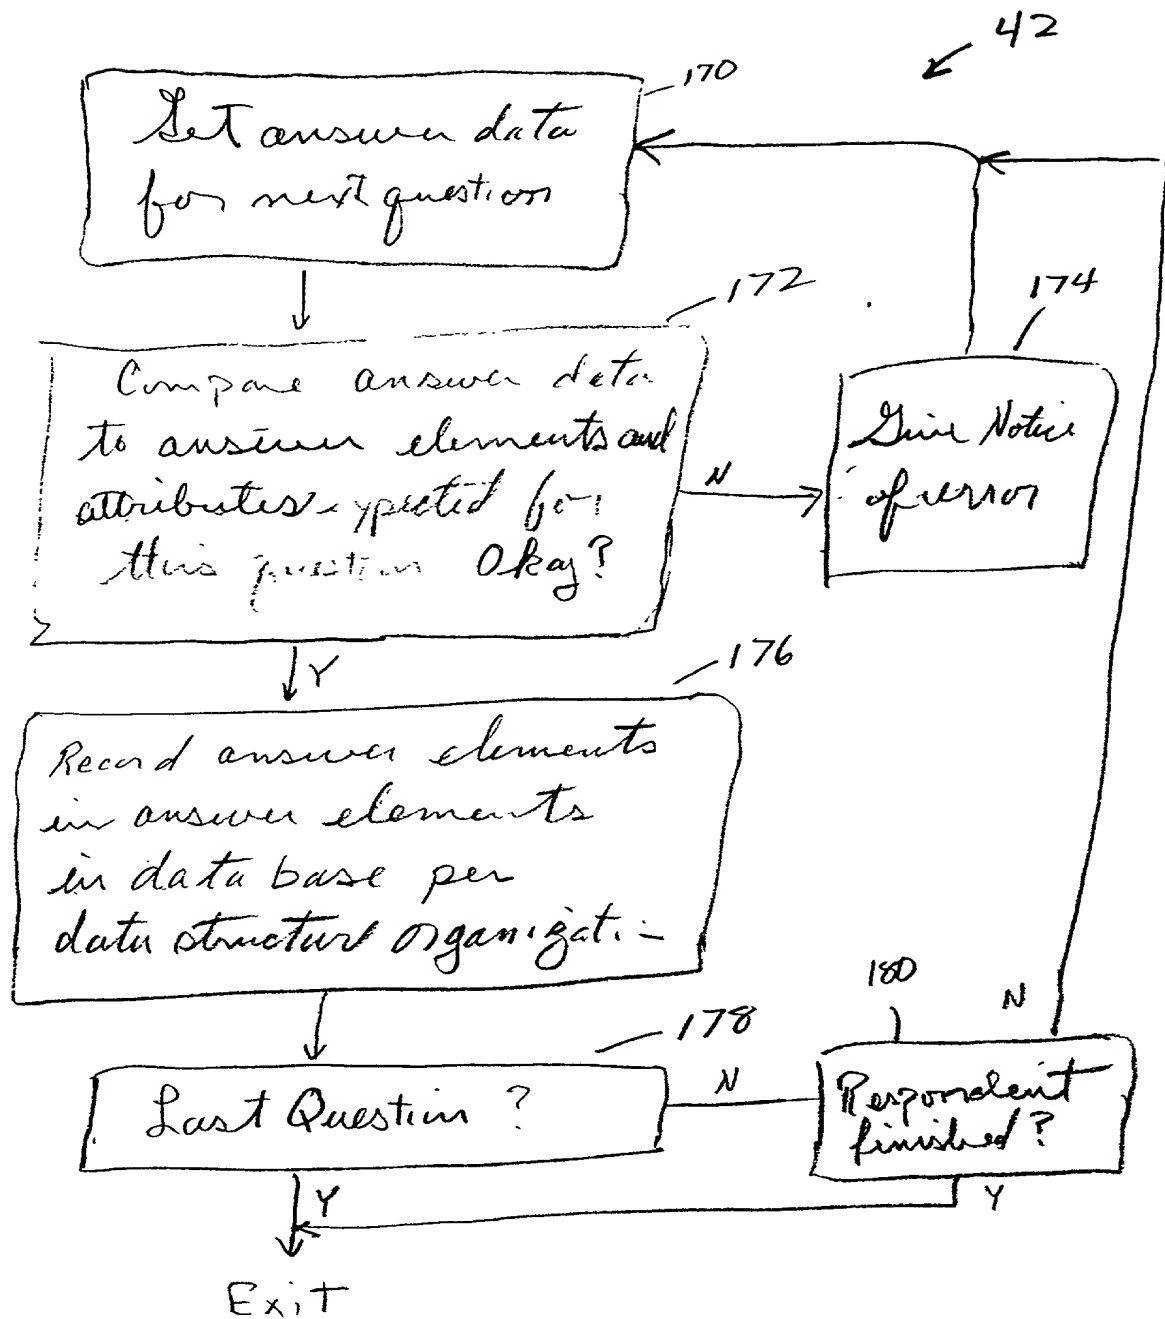 42
170
Get answer data
for next question
172
174
Compare answer data
to answer elements and
attributes expected for
this question Okay?
N
Give Notice
of error
Y
176
Record answer elements
in answer elements
in data base per
data structure organizati-
180
N
178
Last Question ?
N
Respondent
finished?
Y
Y
Exit